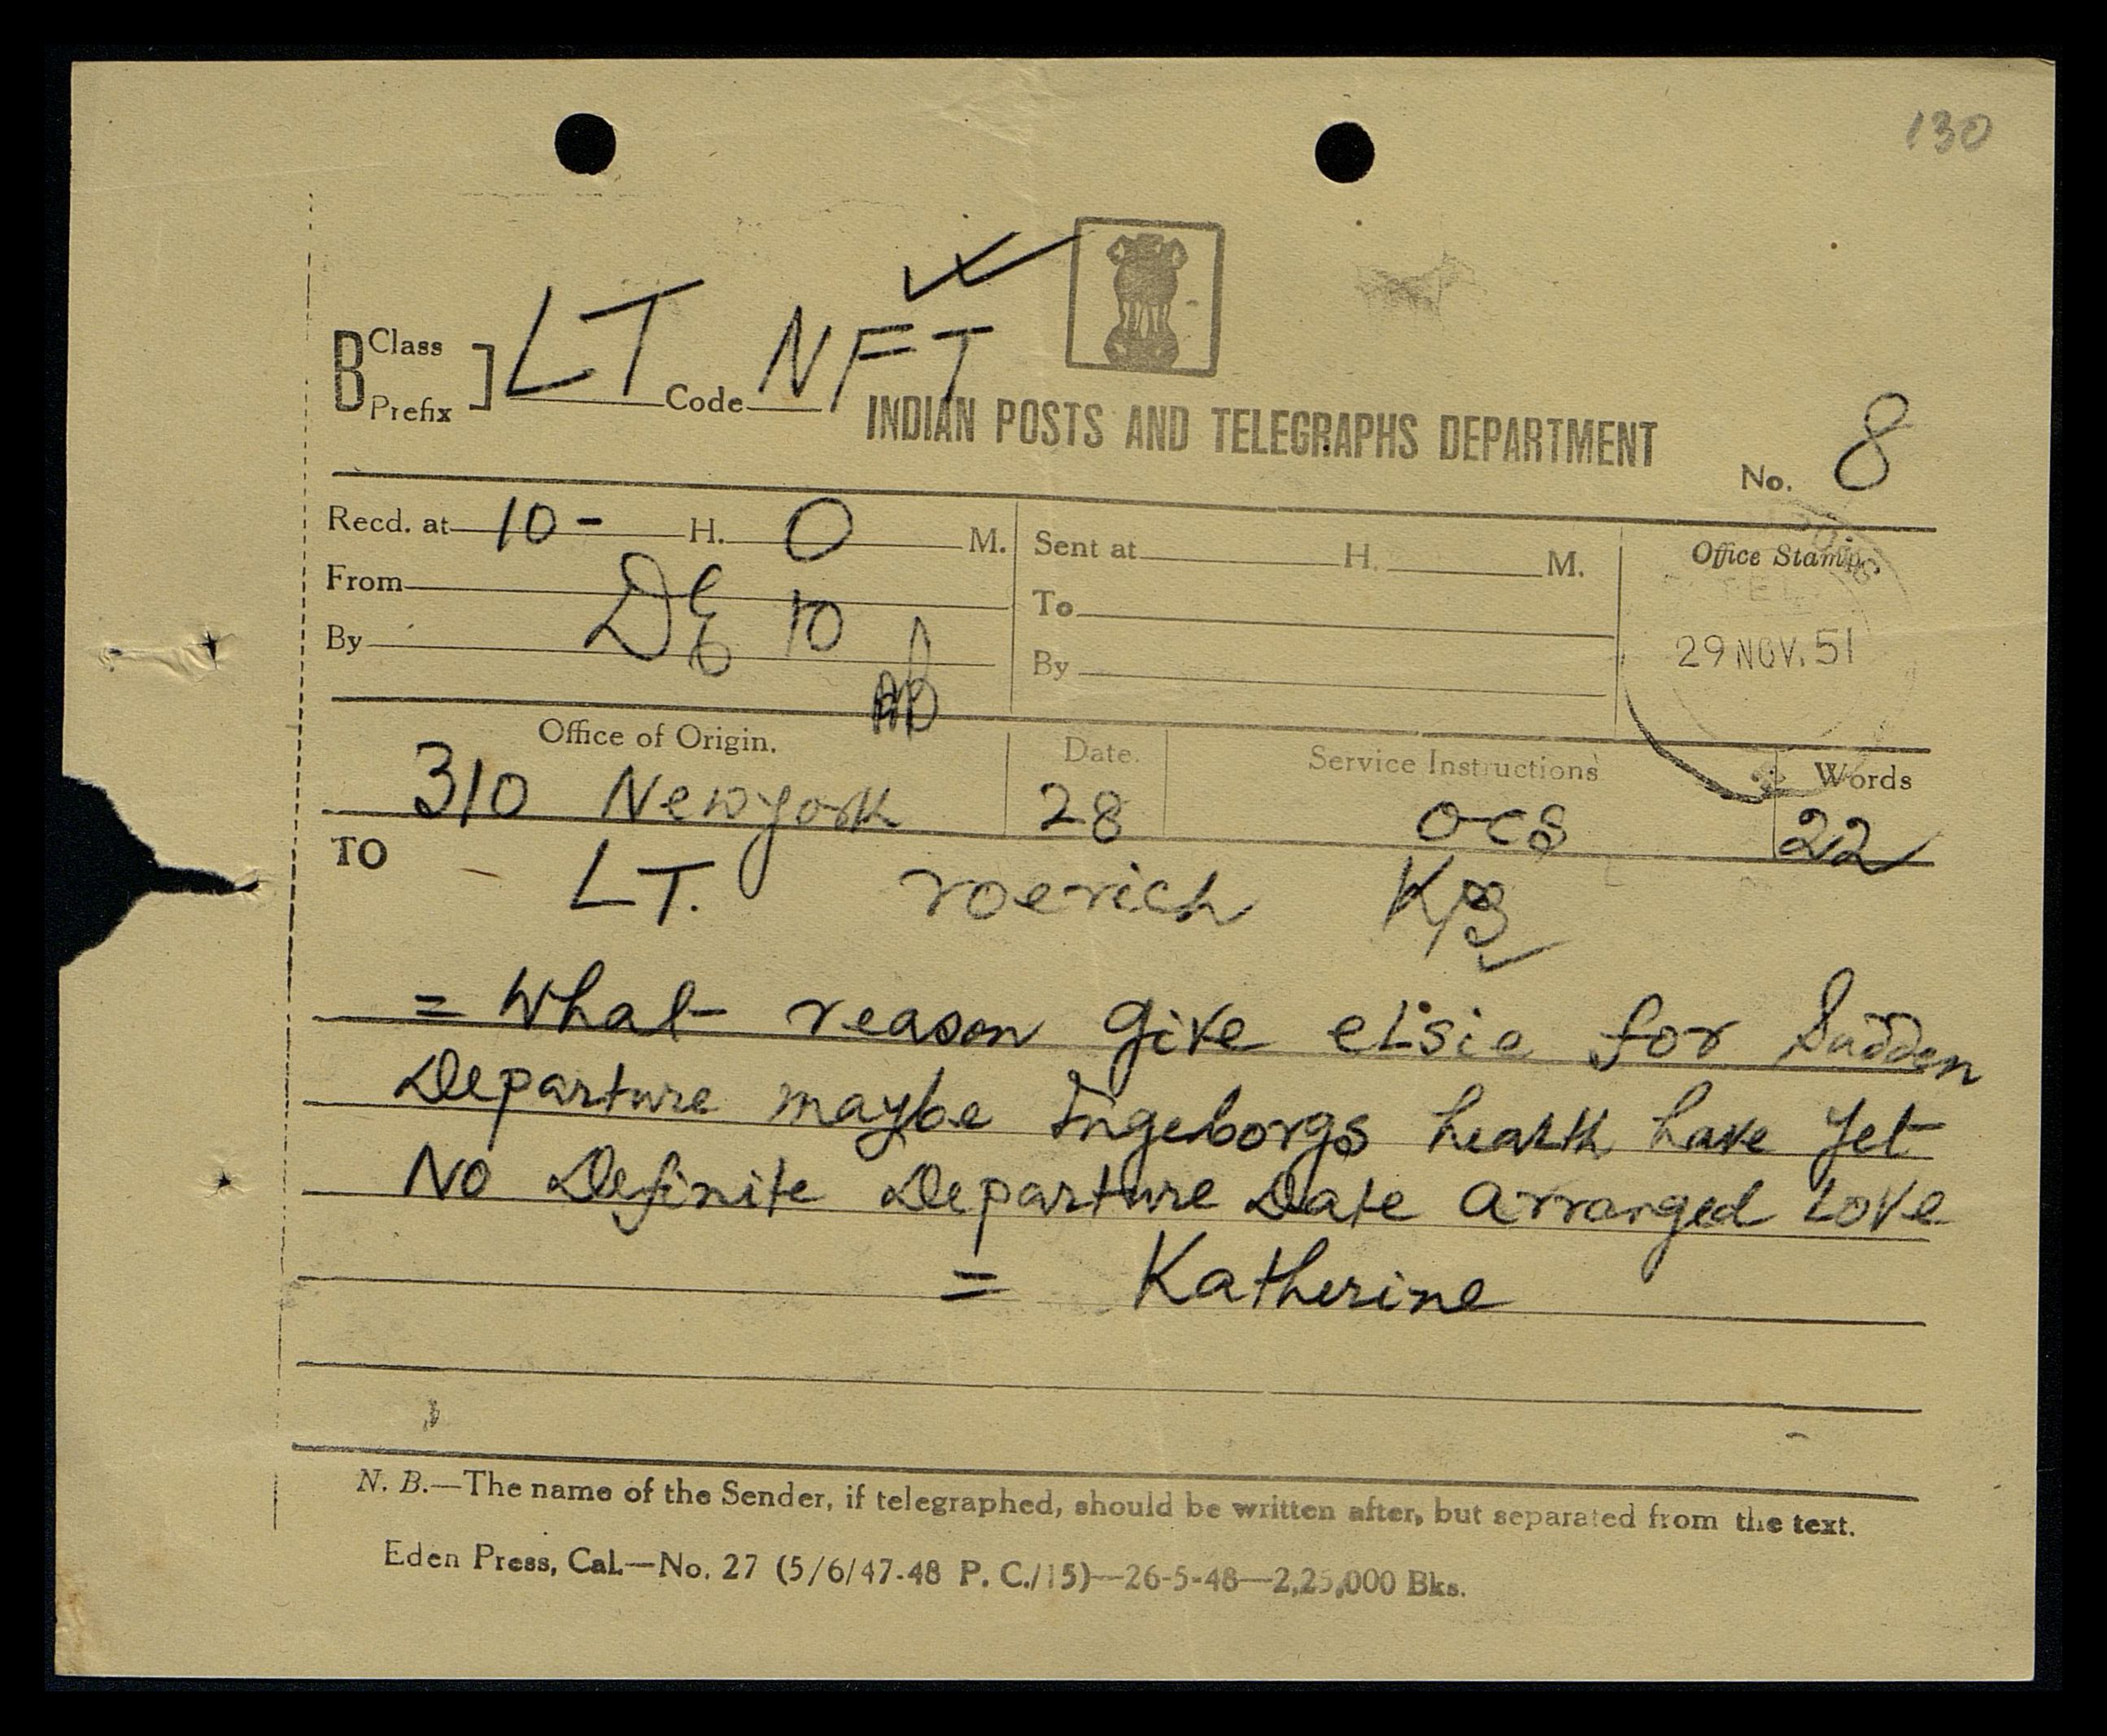 130
B Class Prefix ] LT Code NFT
INDIAN POSTS AND TELEGRAPHS DEPARTMENT
No. 8
Recd. at 10- H. 0 M. Sent at H. M. Office Stamp.
From DE 10 To
By By
29 NOV. 51
Office of Origin. Date. Service Instructions Words
310 Newyork 28 ocs 22
TO LT. roerich KPG
= What reason give elsie for Sudden
Departure maybe Ingeborgs health have yet
No Definite Departure Date arranged Love
= Katherine
N. B.—The name of the Sender, if telegraphed, should be written after, but separated from the text.
Eden Press, Cal.—No. 27 (5/6/47-48 P. C./15)—26-5-48—2,25,000 Bks.